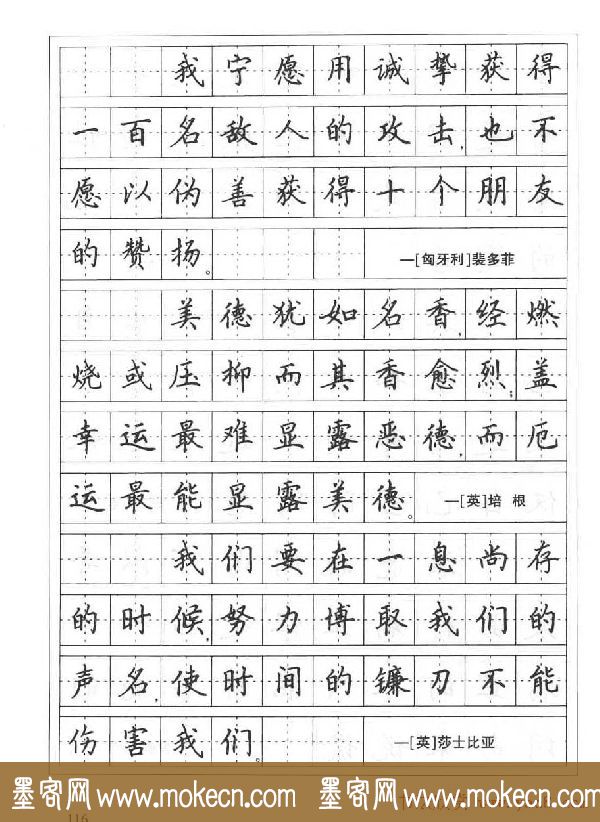 我宁愿用诚挚获得
一百名敌人的攻击，也不
愿以伪善获得十个朋友
的赞扬。 —[匈牙利]裴多菲
美德犹如名香，经燃
烧或压抑而其香愈烈；盖
幸运最难显露恶德，而厄
运最能显露美德。 —[英]培 根
我们要在一息尚存
的时候，努力博取我们的
声名，使时间的镰刀不能
伤害我们。 —[英]莎士比亚
墨客网 www.mokecn.com 墨客网 www.mokecn.com
116